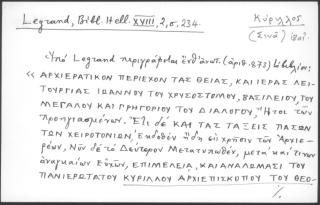 Legrand, Bibl. Hell. XVIII, 2, σ. 234.
Κύριλλος
(Σινᾶ)
Ὑπὸ Legrand περιγράφεται (ἀριθ. 873) βιβλίον:
« ΑΡΧΙΕΡΑΤΙΚΟΝ ΠΕΡΙΕΧΟΝ ΤΑΣ ΘΕΙΑΣ, ΚΑΙ ΙΕΡΑΣ ΛΕΙ-
ΤΟΥΡΓΙΑΣ ΙΩΑΝΝΟΥ ΤΟΥ ΧΡΥΣΟΣΤΟΜΟΥ, ΒΑΣΙΛΕΙΟΥ, ΤΟΥ
ΜΕΓΑΛΟΥ ΚΑΙ ΓΡΗΓΟΡΙΟΥ ΤΟΥ ΔΙΑΛΟΓΟΥ, Ἤτοι τῶν
Προηγιασμένων. Ἔτι δὲ ΚΑΙ ΤΑΣ ΤΑΞΕΙΣ ΠΑΣΩΝ
ΤΩΝ ΧΕΙΡΟΤΟΝΙΩΝ, Ἐκδοθὲν ἤδη εἰς χρῆσιν τῶν Ἀρχιε-
ρέων, Νῦν δὲ τὸ Δεύτερον Μετατυπωθέν, μετὰ καί τινων
ἀναγκαίων Εὐχῶν, ΕΠΙΜΕΛΕΙᾼ, ΚΑΙ ΑΝΑΛΩΜΑΣΙ ΤΟΥ
ΠΑΝΙΕΡΩΤΑΤΟΥ ΚΥΡΙΛΛΟΥ ΑΡΧΙΕΠΙΣΚΟΠΟΥ ΤΟΥ ΘΕΟ-
%